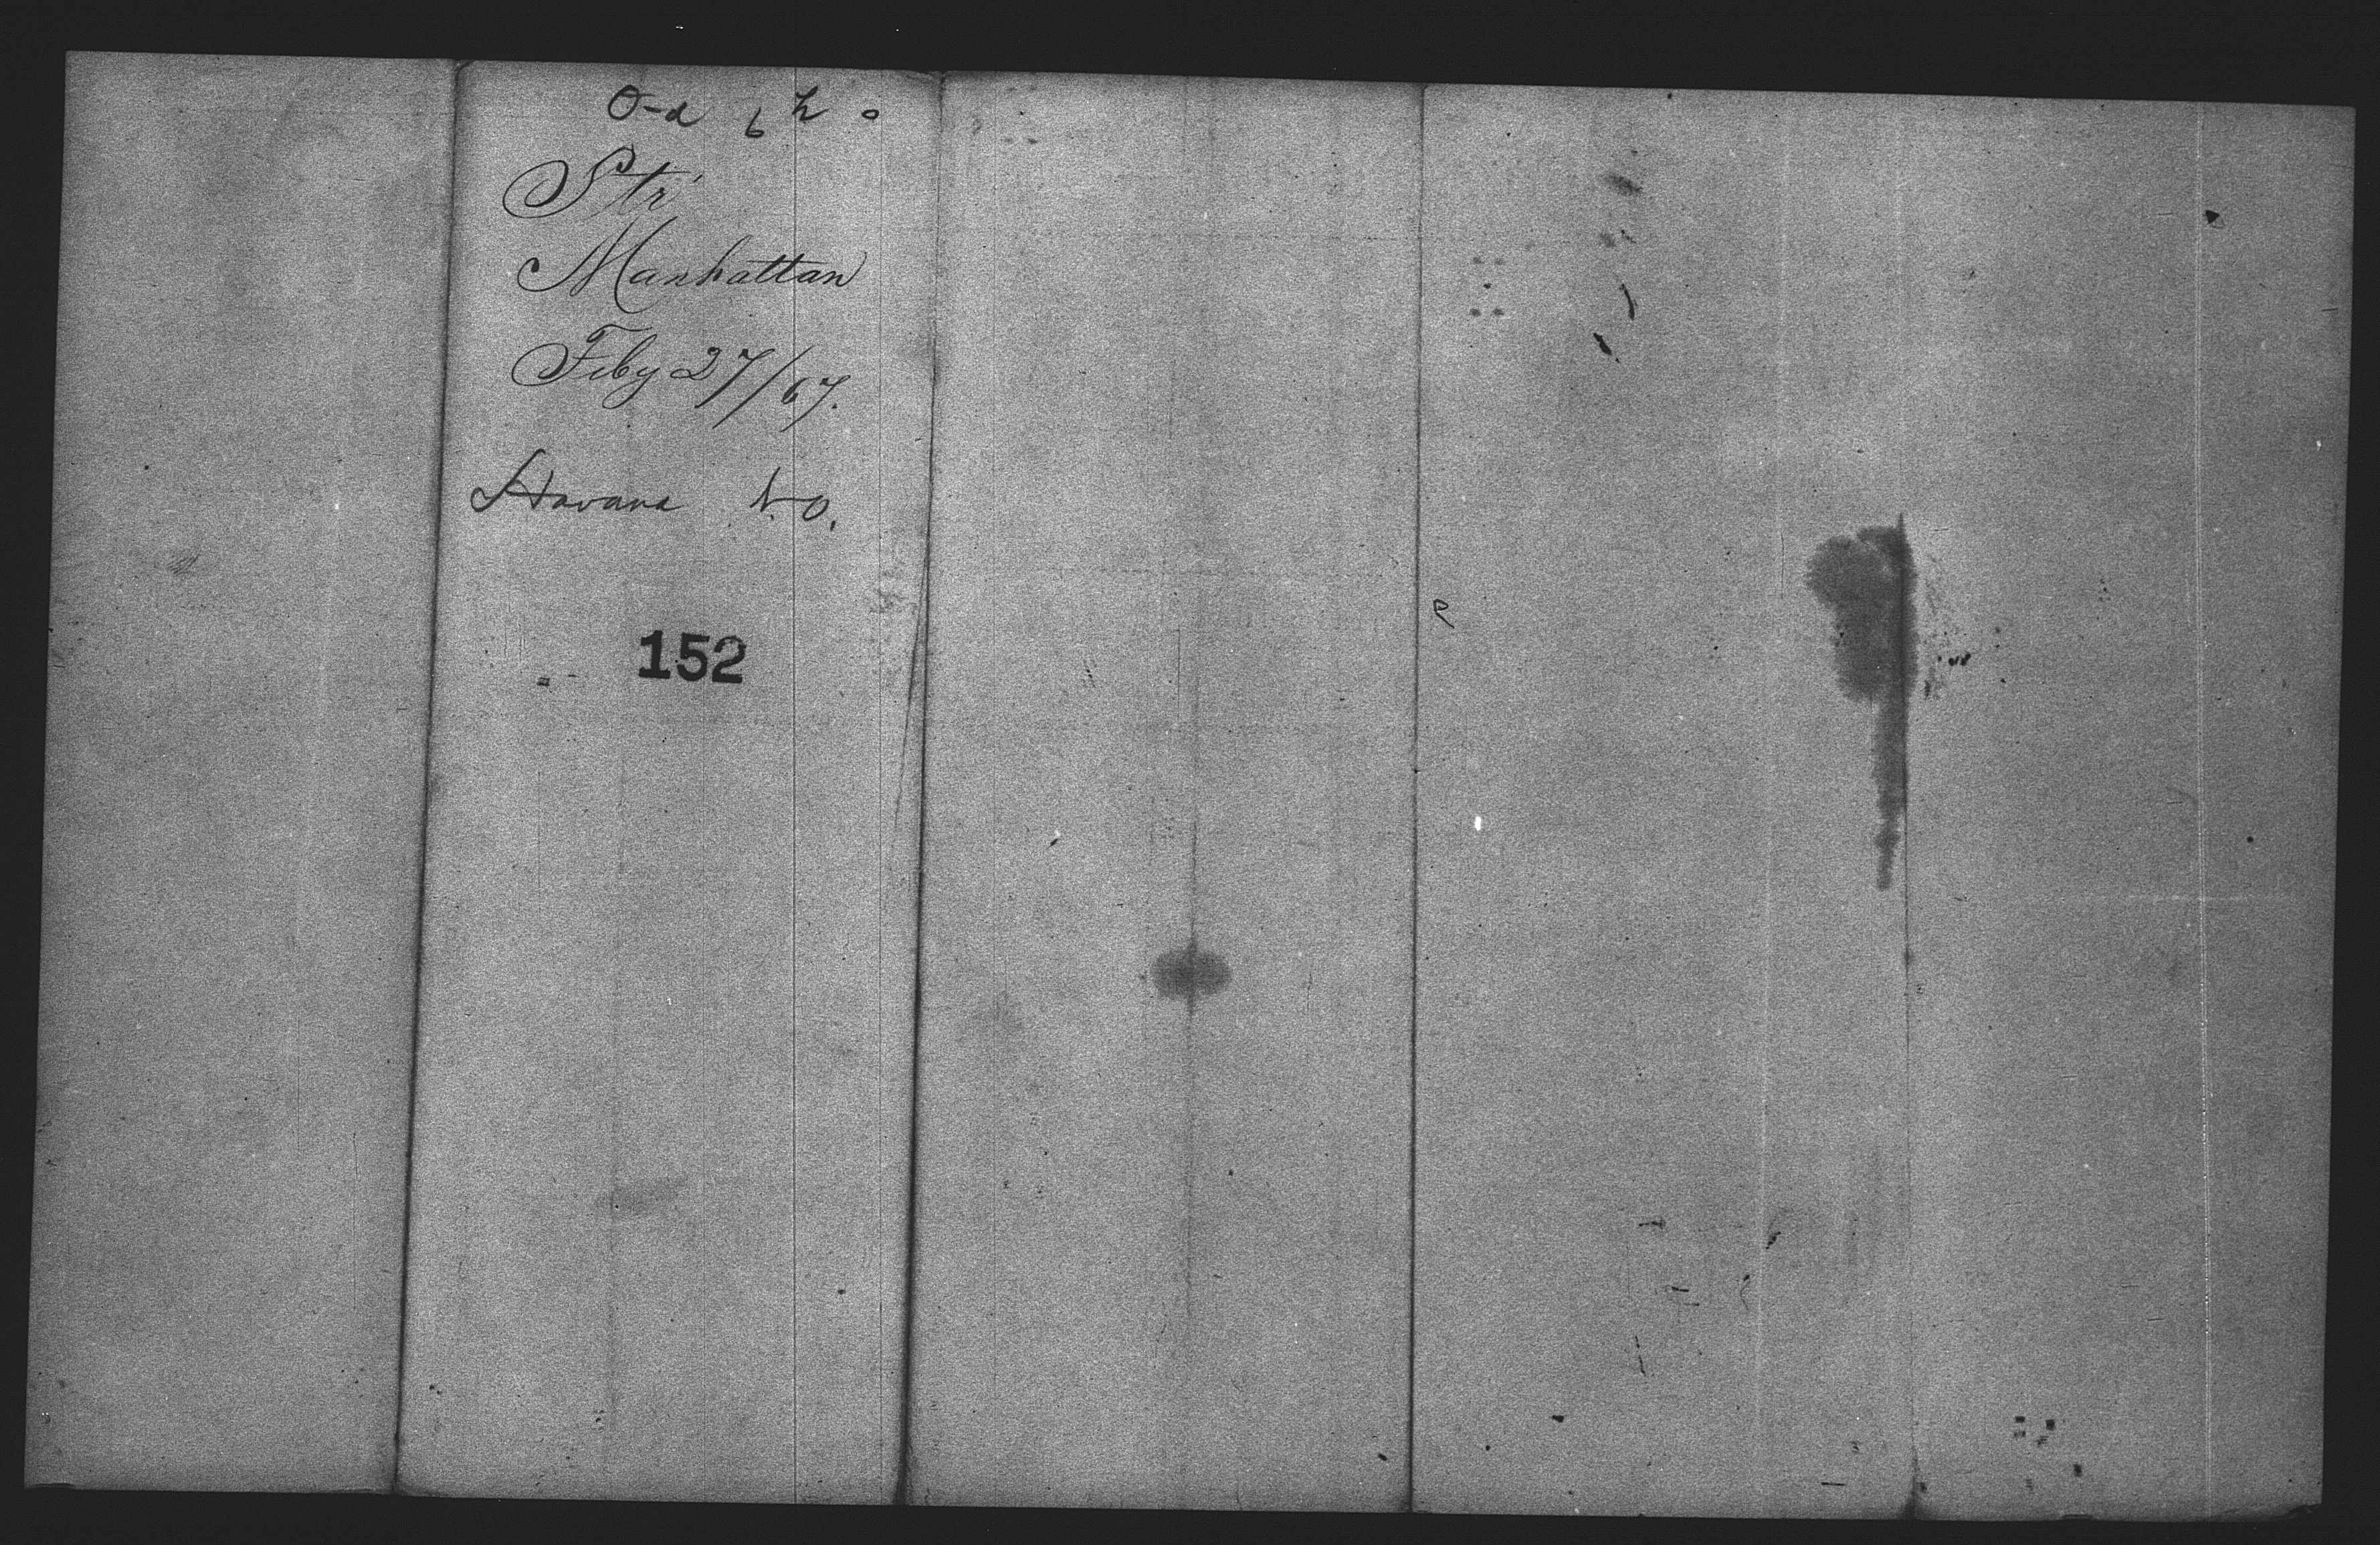 Str
Manhattan
Feby 27/67.
Havana
152